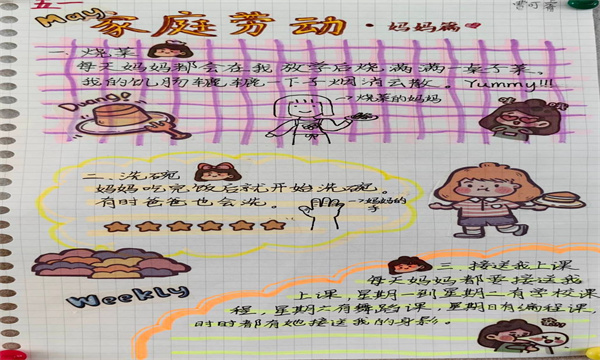 五一
May
家庭劳动·妈妈篇
一、烧菜
每天妈妈都会在我放学后烧满满一桌子菜。
我的饥肠辘辘一下子烟消云散。Yummy!!!
Duang?
→烧菜的妈妈
二、洗碗
妈妈吃完饭后就开始洗碗。
有时爸爸也会洗。
→妈妈的
手
Weekly
三、接送我上课
每天妈妈都要接送我
上课,星期一到星期二有学校课
程,星期六有舞蹈课,星期日有编程课,
时时都有她接送我的身影。